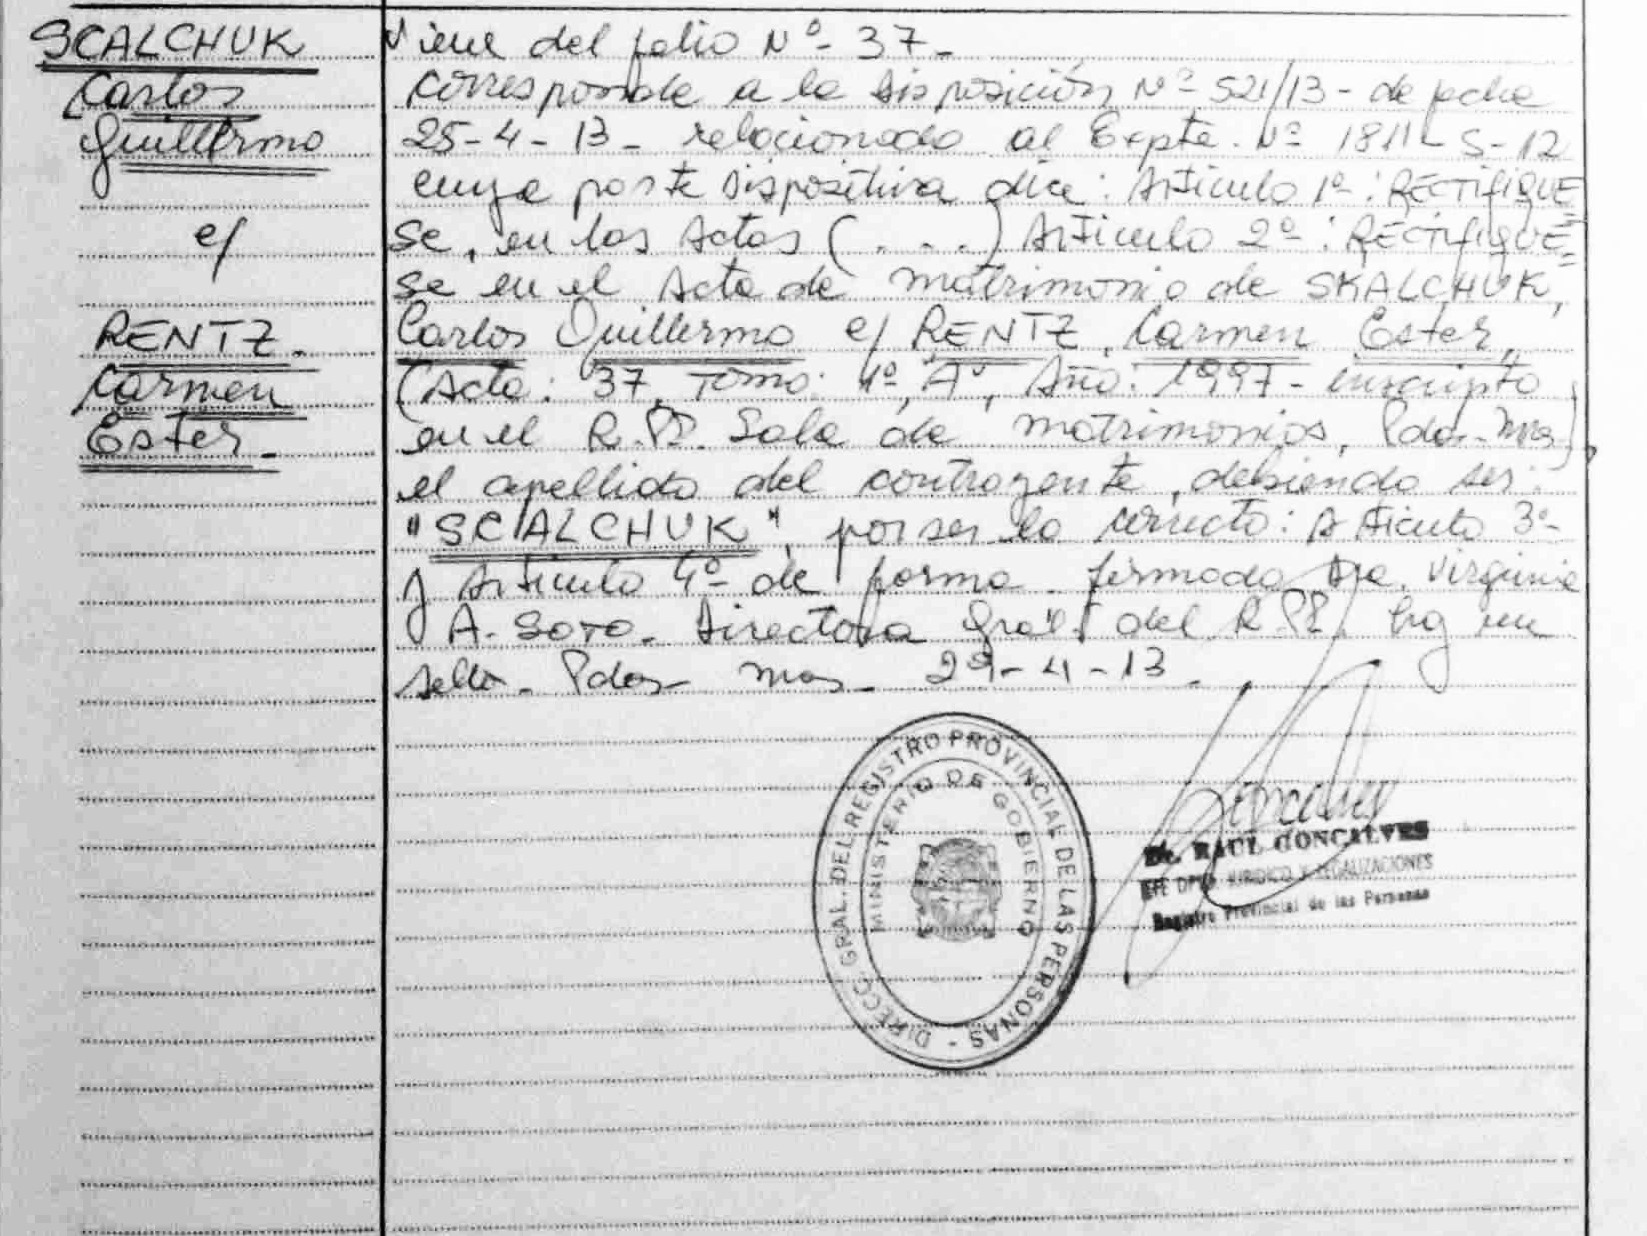 SCALCHUK
Carlos
Guillermo
c/
RENTZ.
Carmen
Ester.
Viene del folio Nº 37.
Corresponde a la disposición Nº 521/13 - de fecha
25-4-13 - relacionado al Expte. Nº 1811-S-12
cuya parte dispositiva dice: Artículo 1º: RECTIFIQUE=
se, en las Actas (...) Artículo 2º: RECTIFIQUE=
se en el Acta de matrimonio de SKALCHUK,
Carlos Guillermo c/ RENTZ, Carmen Ester,
(Acta: 37, Tomo: 1º, "A", Año: 1997 - inscripto
en el R.PP. Sala de matrimonios, Pdas. Mnes),
el apellido del contrayente, debiendo ser:
"SCALCHUK", por ser lo correcto: Artículo 3º-
y Artículo 4º- de forma. firmado Dra. Virginia
A. SOTO. Directora Gral. del R.PP. hay un
sello. Pdas mnes. 29-4-13.
DIRECC. GRAL. DEL REGISTRO PROVINCIAL DE LAS PERSONAS -
MINISTERIO DE GOBIERNO
Dr. RAUL GONCALVES
JURIDICO Y LEGALIZACIONES
Registro Provincial de las Personas